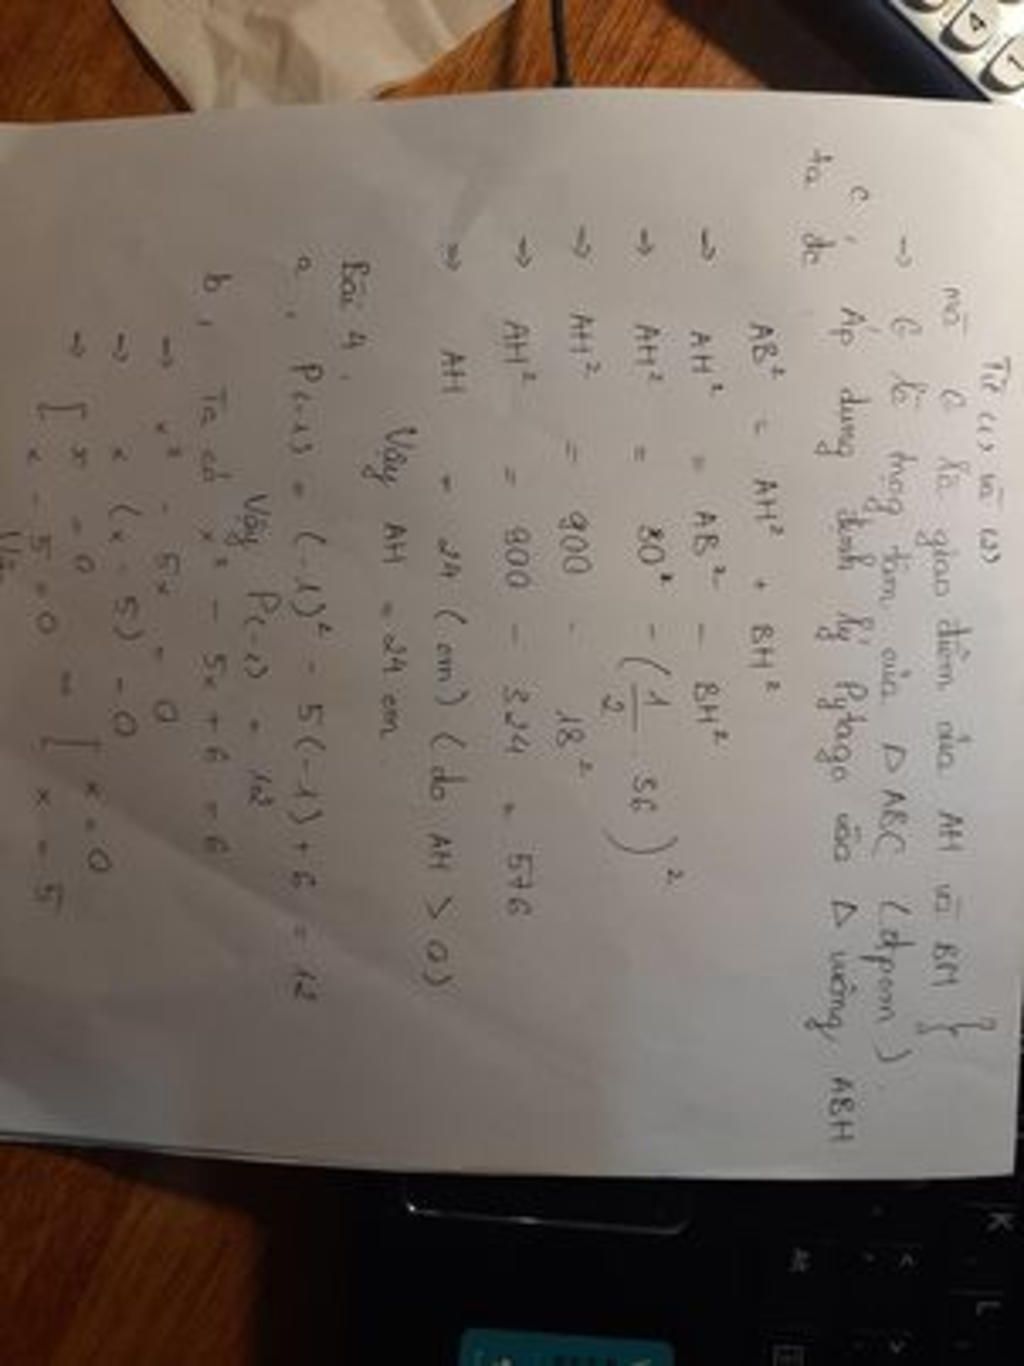 Từ (1) và (2)
mà G là giao điểm của AH và BM }
→ G là trọng tâm của Δ ABC (đpcm)
c, Áp dụng định lý Pytago vào Δ vuông ABH
ta đc
AB² = AH² + BH²
→ AH² = AB² - BH²
→ AH² = 30² - (1/2 . 36)²
→ AH² = 900 - 18²
→ AH² = 900 - 324 = 576
→ AH = 24 (cm) (do AH > 0)
Vậy AH = 24 cm
Bài 4,
a, P(-1) = (-1)² - 5(-1) + 6 = 12
Vậy P(-1) = 12
b, Ta có x² - 5x + 6 = 6
→ x² - 5x = 0
→ x (x - 5) = 0
→ [ x = 0 [ x = 0
x - 5 = 0 → x = 5